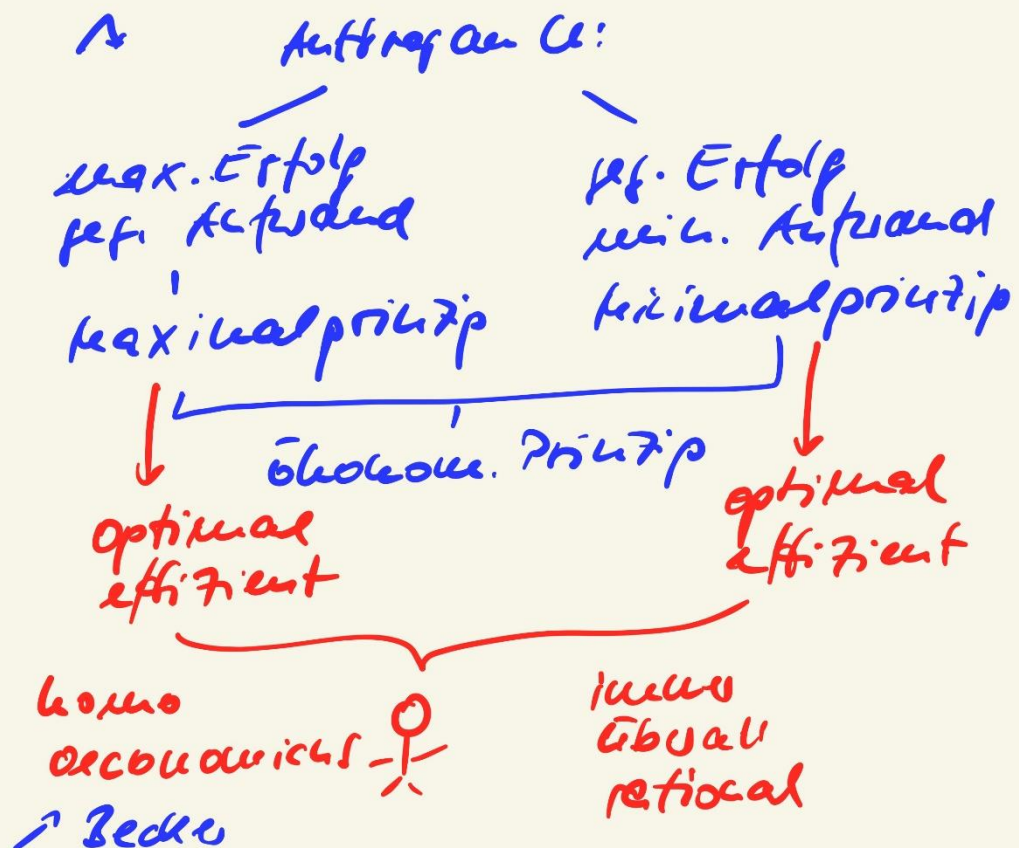 Auftrag an U:
max. Erfolg
geg. Aufwand
Maximalprinzip
geg. Erfolg
min. Aufwand
Minimalprinzip
ökonom. Prinzip
optimal
effizient
optimal
effizient
homo
oeconomicus
immer
überall
rational
↗ Becker